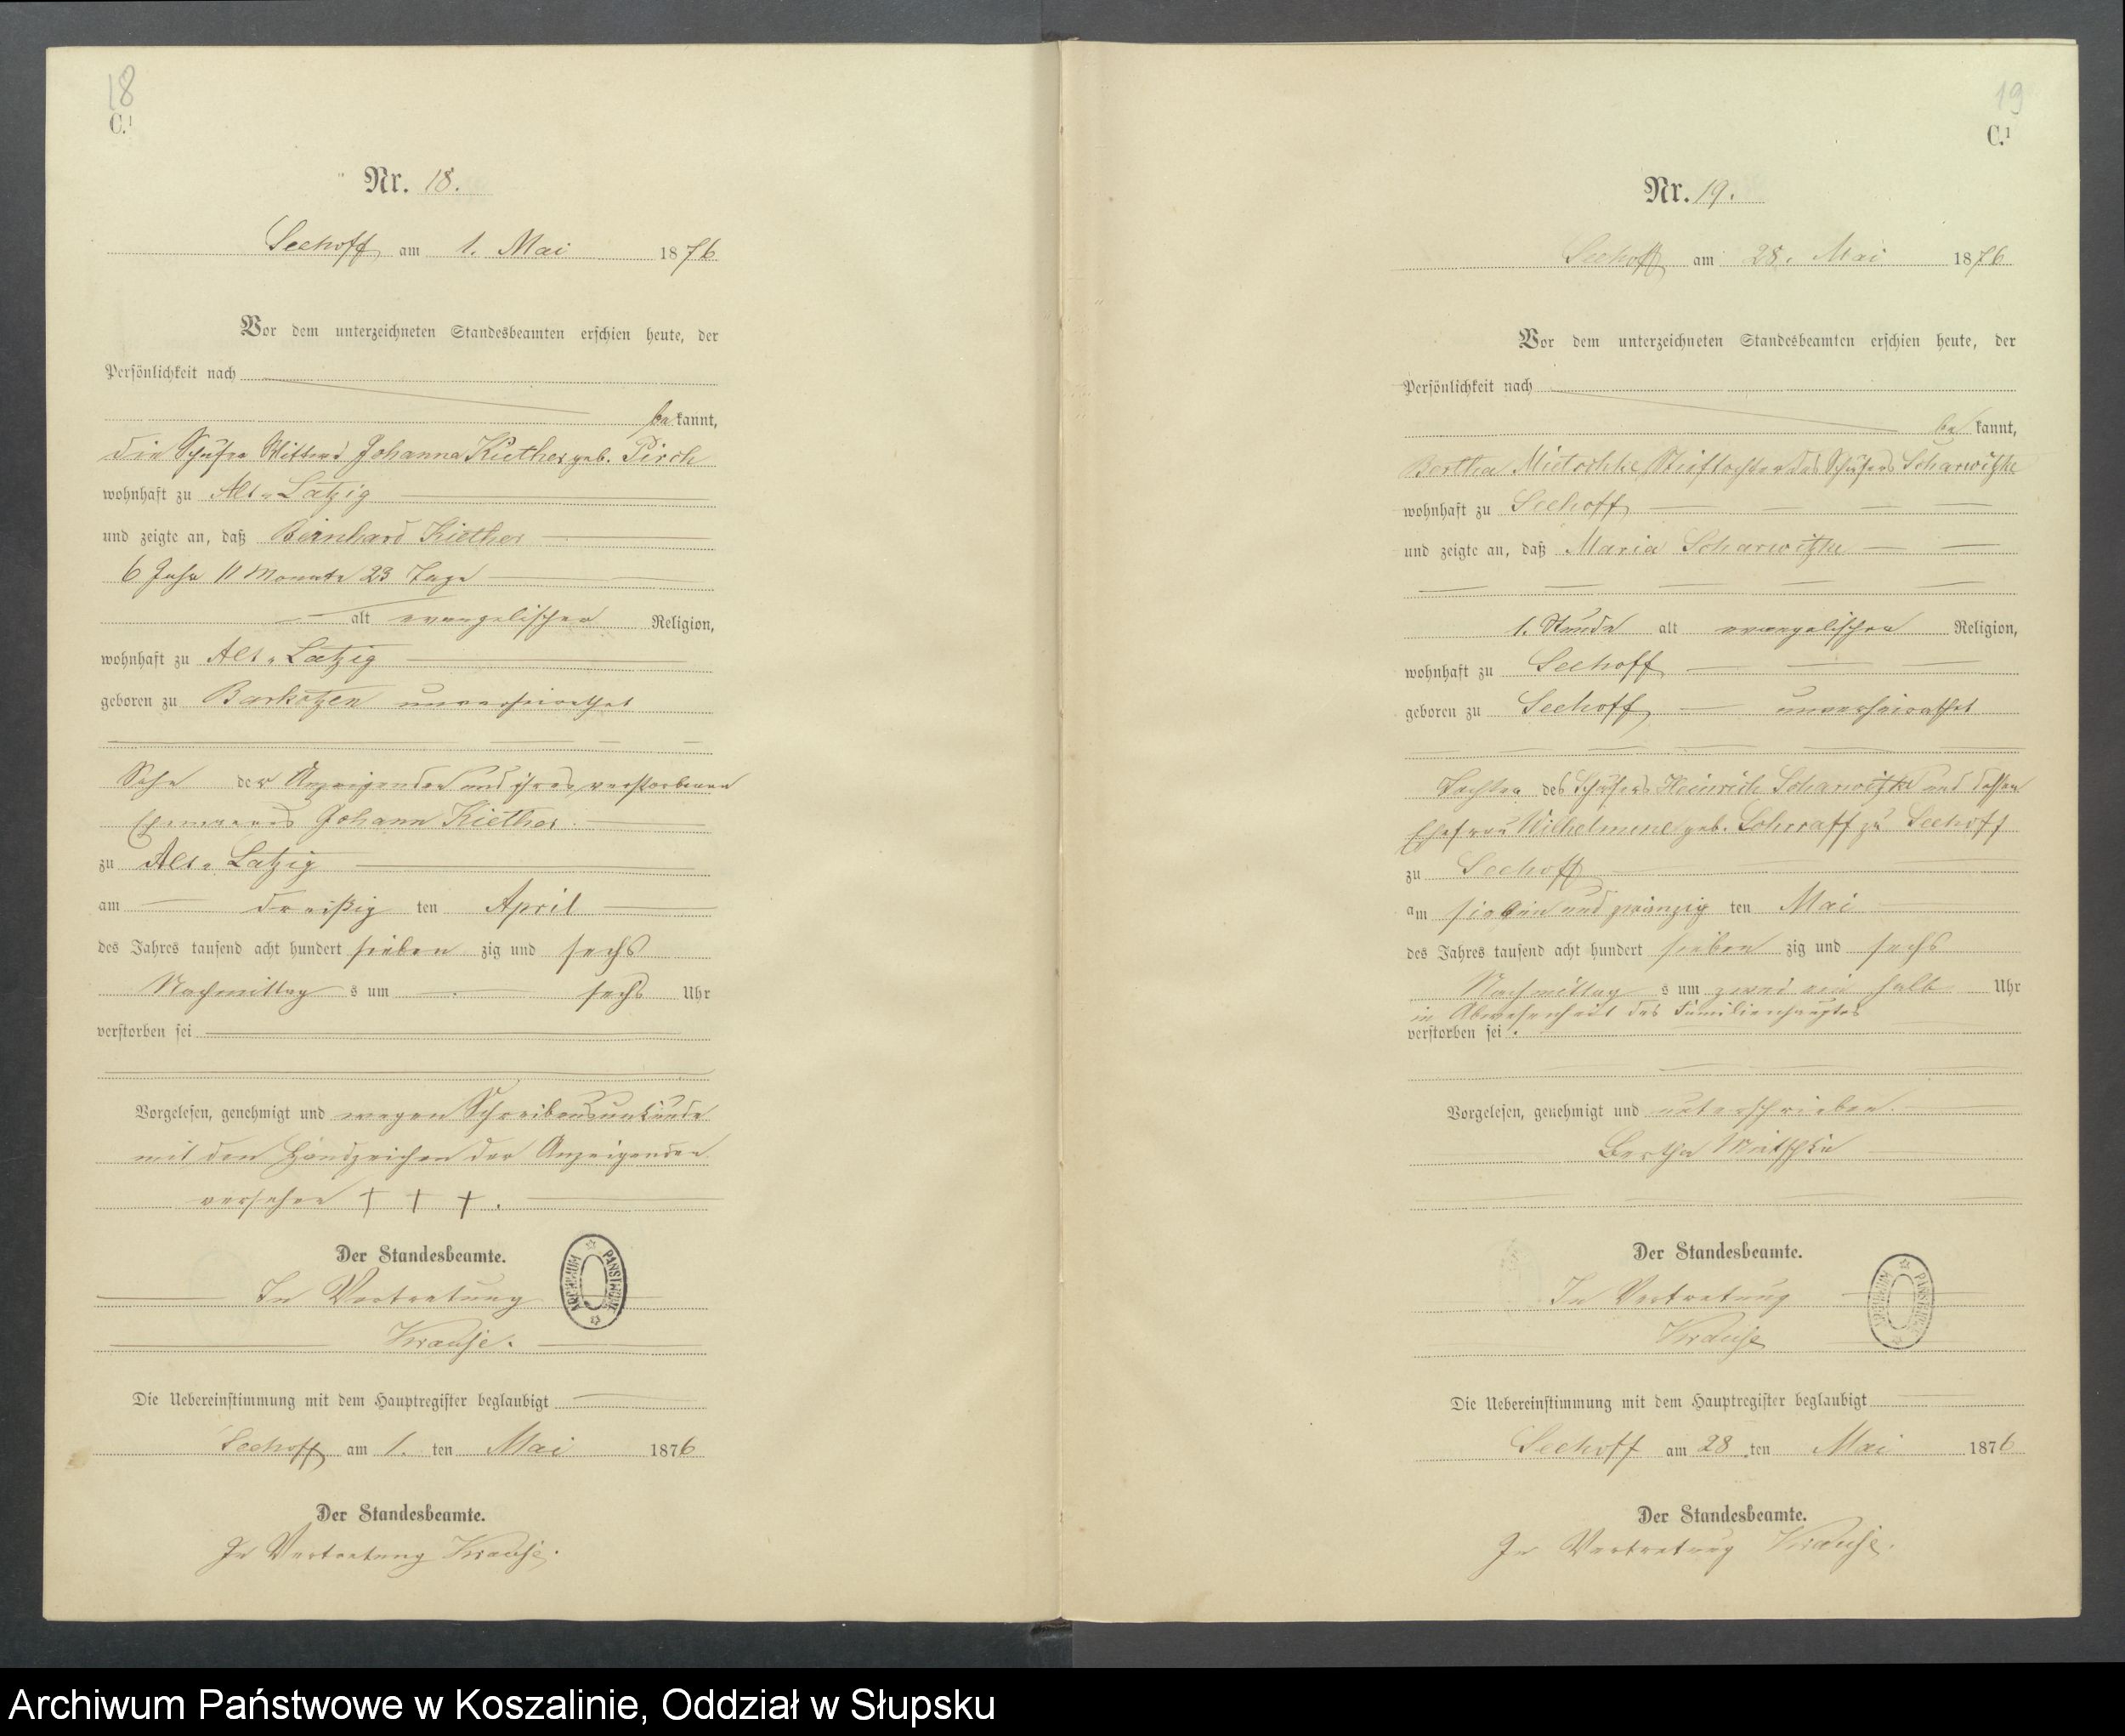 18
C.¹
Nr. 18.
Seehoff am 1. Mai 1876
Vor dem unterzeichneten Standesbeamten erschien heute, der
Persönlichkeit nach
be kannt,
die Schäfer Wittwe Johanna Kiether geb. Pirch
wohnhaft zu Alt-Latzig
und zeigte an, daß Beinhard Kiether
6 Jahr 11 Monate 23 Tage
alt evangelischer Religion,
wohnhaft zu Alt-Latzig
geboren zu Barkotzen unverheirathet
Sohn der Anzeigenden und ihres verstorbenen
Ehemannes Johann Kiether.
zu Alt-Latzig
am dreißig ten April
des Jahres tausend acht hundert sieben zig und sechs
Nachmittag s um sechs Uhr
verstorben sei
Vorgelesen, genehmigt und wegen Schreibensunkunde
mit den Handzeichen der Anzeigenden
versehen † † †.
Der Standesbeamte.
In Vertretung
Krause.
ARCHIWUM PAŃSTWOWE
Die Uebereinstimmung mit dem Hauptregister beglaubigt
Seehoff am 1. ten Mai 1876
Der Standesbeamte.
In Vertretung Krause.
19
C.¹
Nr. 19.
Seehoff am 28. Mai 1876
Vor dem unterzeichneten Standesbeamten erschien heute, der
Persönlichkeit nach
be kannt,
Bertha Mietschke Stieftochter des Schäfers Scharwitzke
wohnhaft zu Seehoff
und zeigte an, daß Maria Scharwitzke
1. Stunde alt evangelischer Religion,
wohnhaft zu Seehoff
geboren zu Seehoff unverheirathet
Tochter des Schäfers Heinrich Scharwitzke und dessen
Ehefrau Wilhelmine geb. zu Seehoff
zu Seehoff
am sieben und zwanzig ten Mai
des Jahres tausend acht hundert sieben zig und sechs
Nachmittag s um zwei ein halb Uhr
in Abwesenheit des Familienhauptes
verstorben sei.
Vorgelesen, genehmigt und unterschrieben.
Bertha Mitschke
Der Standesbeamte.
In Vertretung
Krause
ARCHIWUM PAŃSTWOWE
Die Uebereinstimmung mit dem Hauptregister beglaubigt
Seehoff am 28. ten Mai 1876
Der Standesbeamte.
In Vertretung Krause.
Archiwum Państwowe w Koszalinie, Oddział w Słupsku